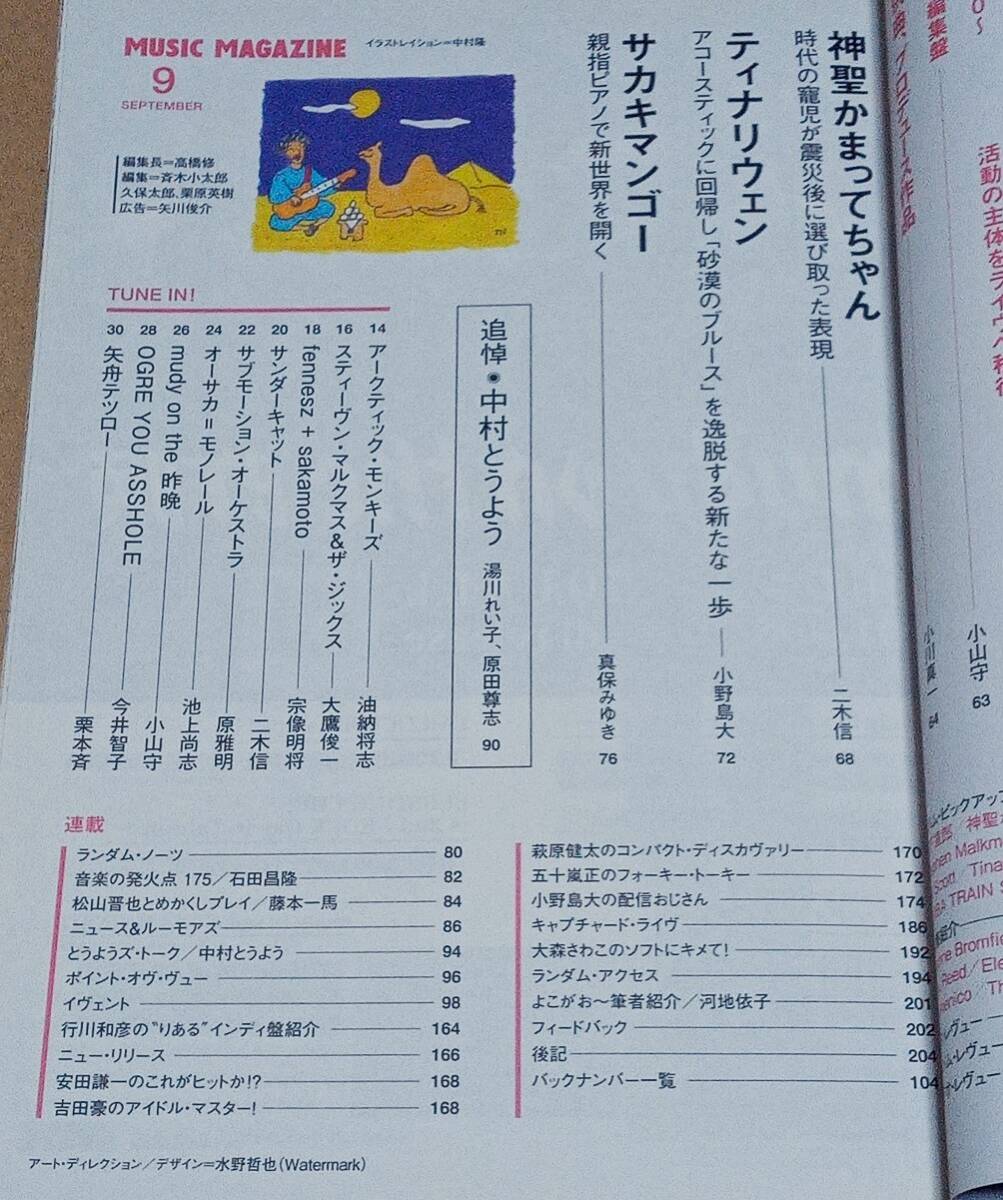 MUSIC MAGAZINE
イラストレイション＝中村隆
9
SEPTEMBER
編集長＝高橋修
編集＝斉木小太郎
久保太郎、栗原英樹
広告＝矢川俊介
編集盤
プロデュース作品
小山守
63
小川真一
64
神聖かまってちゃん
時代の寵児が震災後に選び取った表現
二木信
68
ティナリウェン
アコースティックに回帰し「砂漠のブルース」を逸脱する新たな一歩
小野島大
72
サカキマンゴー
親指ピアノで新世界を開く
真保みゆき
76
追悼・中村とうよう 湯川れい子、原田尊志 90
TUNE IN!
14 アークティック・モンキーズ 油納将志
16 スティーヴン・マルクマス&ザ・ジックス 大鷹俊一
18 fennesz + sakamoto 宗像明将
20 サンダーキャット 二木信
22 サブモーション・オーケストラ 原雅明
24 オーサカ＝モノレール 池上尚志
26 mudy on the 昨晩 小山守
28 OGRE YOU ASSHOLE 今井智子
30 矢舟テツロー 栗本斉
連載
ランダム・ノーツ 80
音楽の発火点 175／石田昌隆 82
松山晋也とめかくしプレイ／藤本一馬 84
ニュース&ルーモアズ 86
とうようズ・トーク／中村とうよう 94
ポイント・オヴ・ヴュー 96
イヴェント 98
行川和彦の“りある”インディ盤紹介 164
ニュー・リリース 166
安田謙一のこれがヒットか!? 168
吉田豪のアイドル・マスター! 168
萩原健太のコンパクト・ディスカヴァリー 170
五十嵐正のフォーキー・トーキー 172
小野島大の配信おじさん 174
キャプチャード・ライヴ 186
大森さわこのソフトにキメて! 192
ランダム・アクセス 194
よこがお〜筆者紹介／河地依子 201
フィードバック 202
後記 204
バックナンバー一覧 104
アート・ディレクション／デザイン＝水野哲也(Watermark)